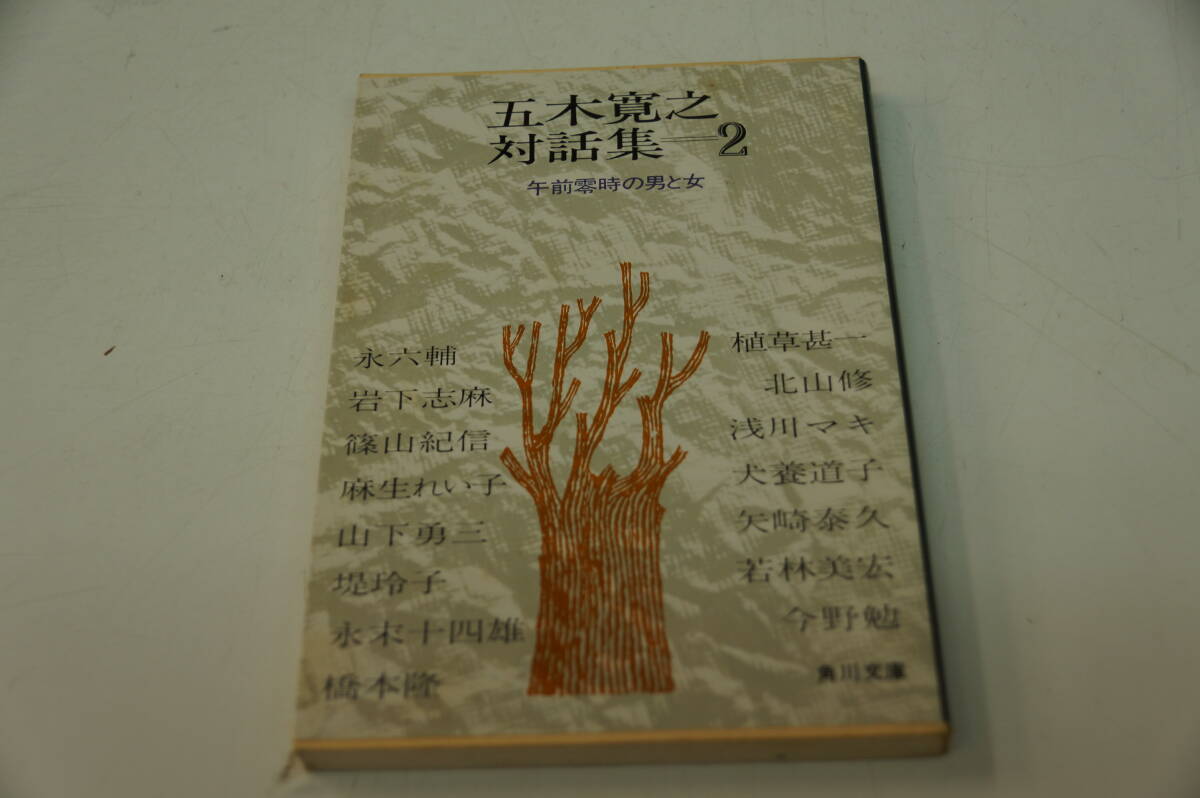 五木寛之
対話集—2
午前零時の男と女
永六輔
岩下志麻
篠山紀信
麻生れい子
山下勇三
堤玲子
永末十四雄
橋本隆
植草甚一
北山修
浅川マキ
犬養道子
矢崎泰久
若林美宏
今野勉
角川文庫